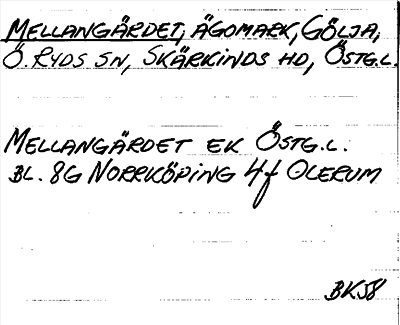 MELLANGÄRDET, ÄGOMARK, GÖLJA,
Ö. RYDS SN, SKÄRKINDS HD, ÖSTG.L.
MELLANGÄRDET EK ÖSTG.L.
BL. 8G NORRKÖPING 4f OLERUM
BK58